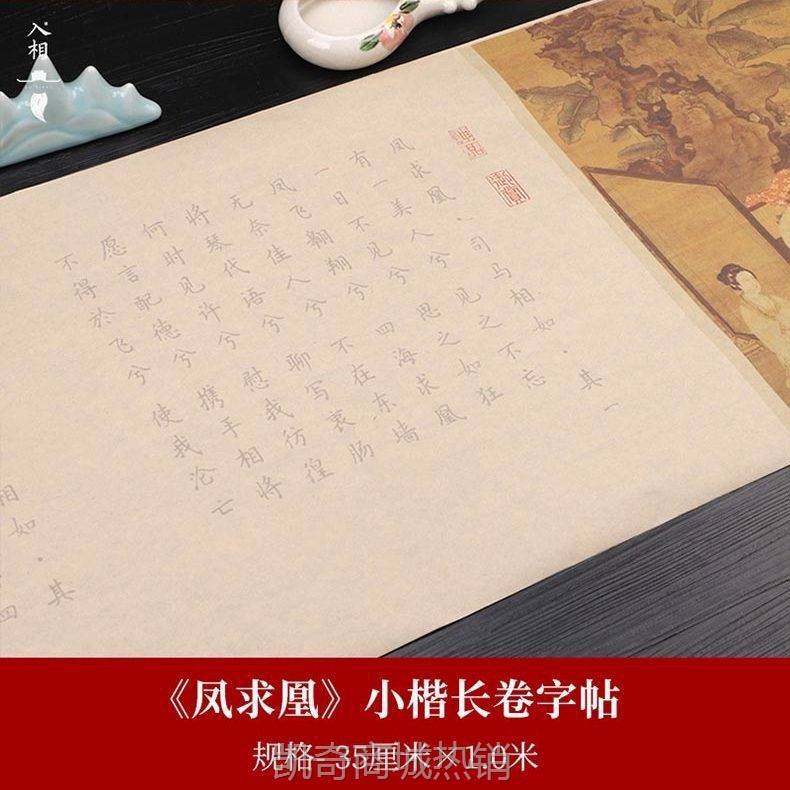 入相
凤求凰·司马相如·其一
有一美人兮 见之不忘
一日不见兮 思之如狂
凤飞翱翔兮 四海求凰
无奈佳人兮 不在东墙
将琴代语兮 聊写衷肠
何时见许兮 慰我彷徨
愿言配德兮 携手相将
不得於飞兮 使我沦亡
相如·其
四
《凤求凰》小楷长卷字帖
规格 35厘米×1.0米
凯奇商城热销